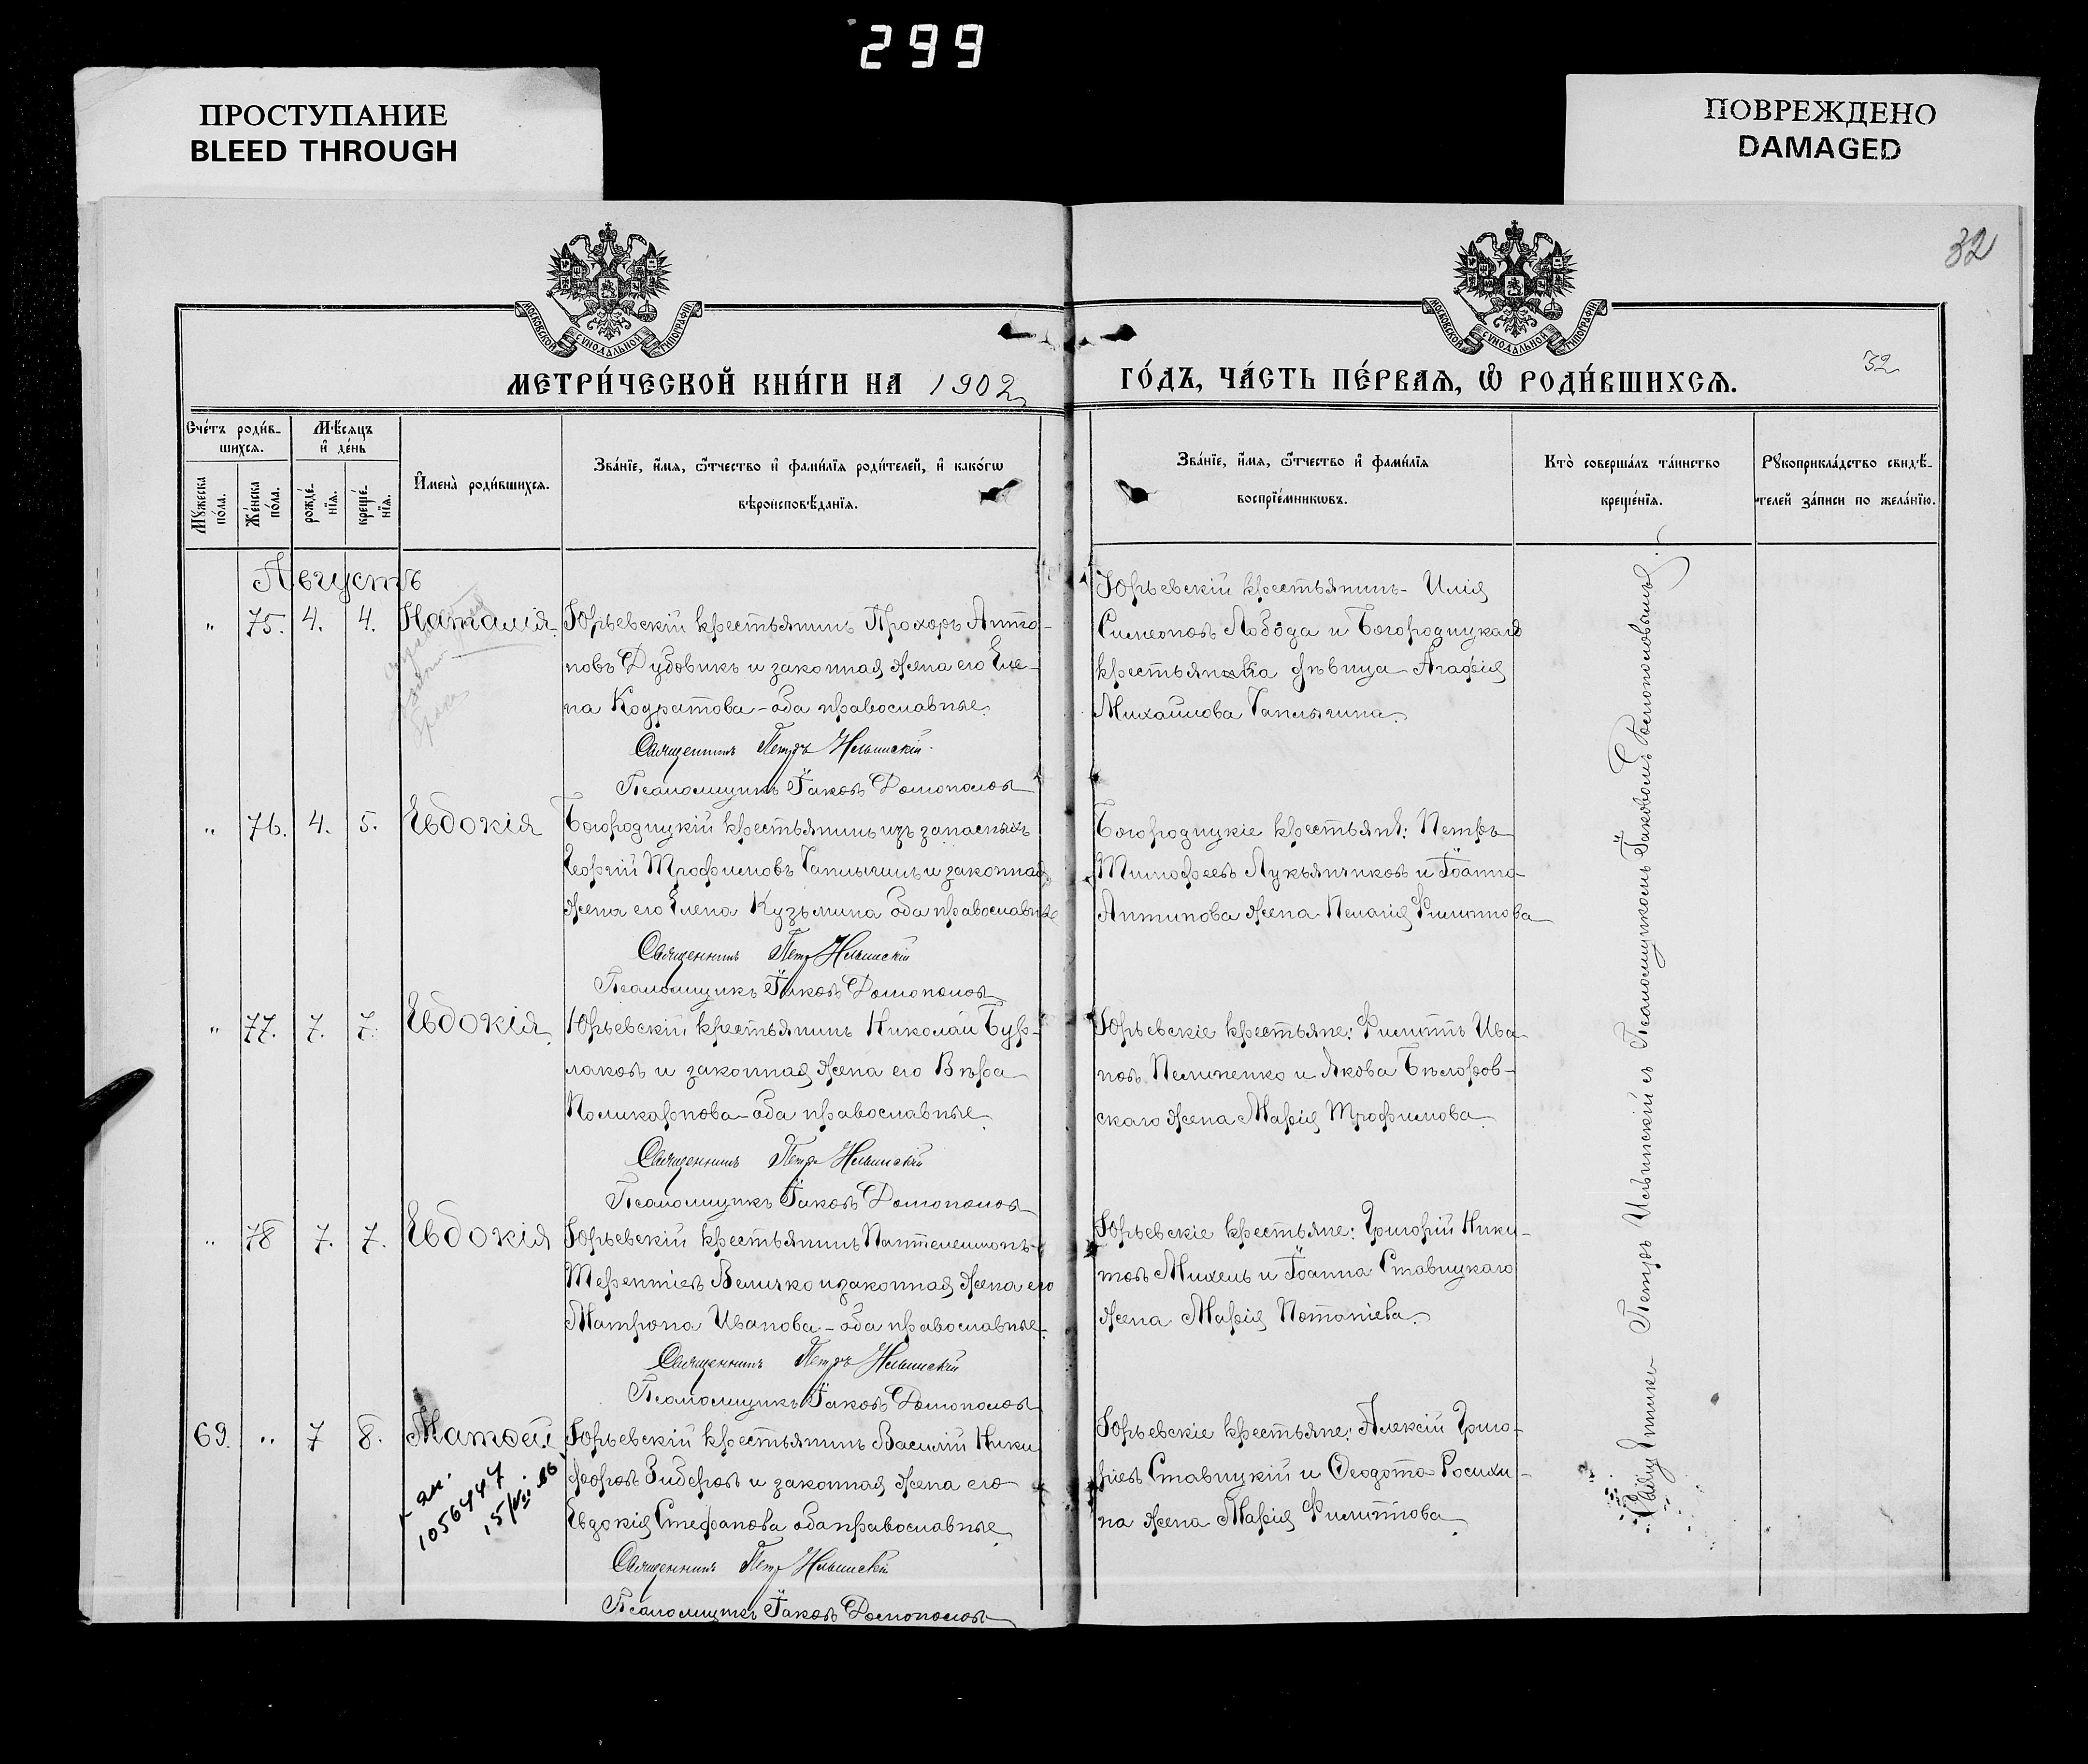 299
ПРОСТУПАНИЕ
BLEED THROUGH
ПОВРЕЖДЕНО
DAMAGED
32
МОСКОВСКОЙ СѴНОДАЛЬНОЙ ТИПОГРАФІИ
МОСКОВСКОЙ СѴНОДАЛЬНОЙ ТИПОГРАФІИ
МЕТРИ́ЧЕСКОЙ КНИ́ГИ НА 1902
ГО́ДЪ, ЧА́СТЬ ПЕ́РВАѦ, Ѡ҆ РОДИ́ВШИХСѦ.
32
Сче́тъ роди́в-
шихсѧ.
Мꙋ́жеска по́ла.
Же́нска по́ла.
Мѣ́сѧцъ
и҆ де́нь
рожде́-
нїѧ.
креще́-
нїѧ.
И҆мена̀ роди́вшихсѧ.
Зва́нїе, и҆́мѧ, ѻ҆́тчество и҆ фамі́лїѧ роди́телей, и҆ како́гѡ
вѣроисповѣ́данїѧ.
Зва́нїе, и҆́мѧ, ѻ҆́тчество и҆ фамі́лїѧ
воспрїе́мникѡвъ.
Кто̀ соверша́лъ та́инство
креще́нїѧ.
Рꙋкоприкла́дство свидѣ́-
телей за́писи по жела́нїю.
Августъ
" 75. 4. 4. Наталія. Юрьевскій крестьянинъ Прохоръ Анто-
новъ Дубовикъ и законная жена его Еле-
на Кодратова - оба православные.
Священникъ Петръ Ильинскій.
Псаломщикъ Іаковъ Домополов
Юрьевскій крестьянинъ - Илія
Симеоновъ Лобода и Богородицкаго
крестьянина дѣвица - Агафія
Михайлова Галлычина.
" 76. 4. 5. Евдокія Богородицкій крестьянинъ изъ запасныхъ
Георгій Трофимовъ Галлычинъ и законная
жена его Елена Кузьмина оба православные
Священникъ Петръ Ильинскій
Псаломщикъ Іаковъ Домополов
Богородицкіе крестьяне: Петръ
Тимофеевъ Лукьянчиковъ и Іоанна
Антипова жена Пелагія Филиппова
" 77. 7. 7. Евдокія Юрьевскій крестьянинъ Николай Бур-
лаковъ и законная жена его Вѣра
Поликарпова - оба православные.
Священникъ Петръ Ильинскій
Псаломщикъ Іаковъ Домополов
Юрьевскіе крестьяне: Филиппъ Ива-
новъ Пелипенко и Якова Бѣлоров-
скаго жена Марія Трофимова.
" 78 7. 7. Евдокія Юрьевскій крестьянинъ Пантелеимонъ
Терентіевъ Величко и законная жена его
Матрона Иванова - оба православные.
Священникъ Петръ Ильинскій
Псаломщикъ Іаковъ Домополов
Юрьевскіе крестьяне: Григорій Ники-
товъ Михель и Іоанна Ставицкаго
жена Марія Потапіева.
69. " 7 8. Матѳей Юрьевскій крестьянинъ Василій Ники-
форовъ Зиберовъ и законная жена его
Евдокія Стефанова оба православные.
Священникъ Петръ Ильинскій
Псаломщикъ Іаковъ Домополов
Юрьевскіе крестьяне: Алексій Григо-
ріевъ Ставицкій и Ѳеодота Росихи-
на жена Марія Филиппова.
1056447
Священникъ Петръ Ильинскій съ Псаломщикомъ Іаковомъ